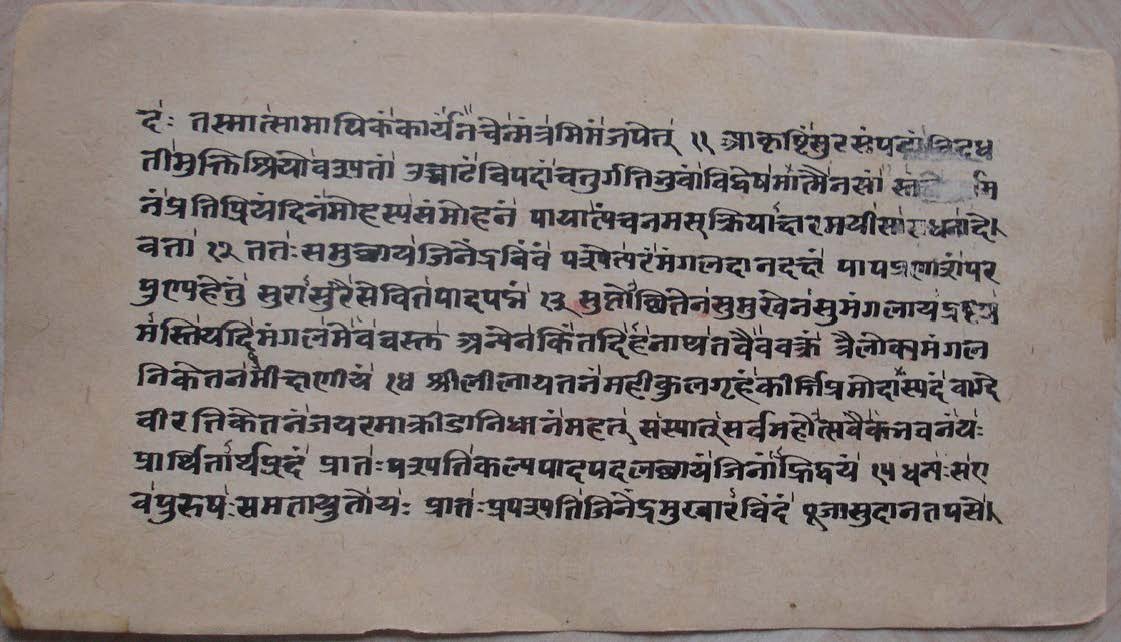 दं: तस्मात्सामायिकंकार्यंनचेन्मंत्रमिमंजपेत् ११ आकृष्टिंसुरसंपदांविदध
तींमुक्तिश्रियोवश्यतां उच्चाटंविपदांचतुर्गतिभुवांविद्वेषमात्मैनसां
नंप्रतिप्रियंदिनंमोहस्यसंमोहनं पायात्पंचनमस्क्रियाक्षरमयीसाराधनादे।
वता १२ ततःसमुच्चायजिनेंद्रबिंबं पश्येत्परंमंगलदानदक्षं पापप्रणाशंपर
पुण्यहेतुं सुरासुरैःसेवितपादपद्मं १३ सुप्तोच्छितेनसुमुखेनसुमंगलाय
मस्तियदिमंगलमेववस्तु अन्येनकिंतदिहनाथतवैववक्त्रं त्रैलोक्यमंगल
निकेतनमीक्षणीयं १४ श्रीलीलायतनंमहीकुलगृहंकीर्त्तिप्रमोदास्पदं वाग्दे
वीरतिकेतनंजयरमाक्रीडानिधानंमहत् संस्यात्सर्वमहोत्सवैकभवनंयः
प्रार्थितार्थप्रदं प्रातःपश्यतिकल्पपादपदलच्छायंजिनांह्रिद्वयं १५ धन्यःसए
वपुरुषःसमतायुतोयः प्रातःप्रपश्यतिजिनेंद्रमुखारविंदं पूजासुदानतपसे।